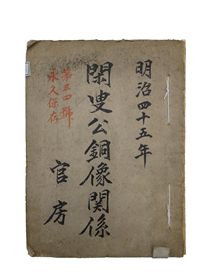 明治四十五年
閑叟公銅像関係
官房
第五四號
永久保存